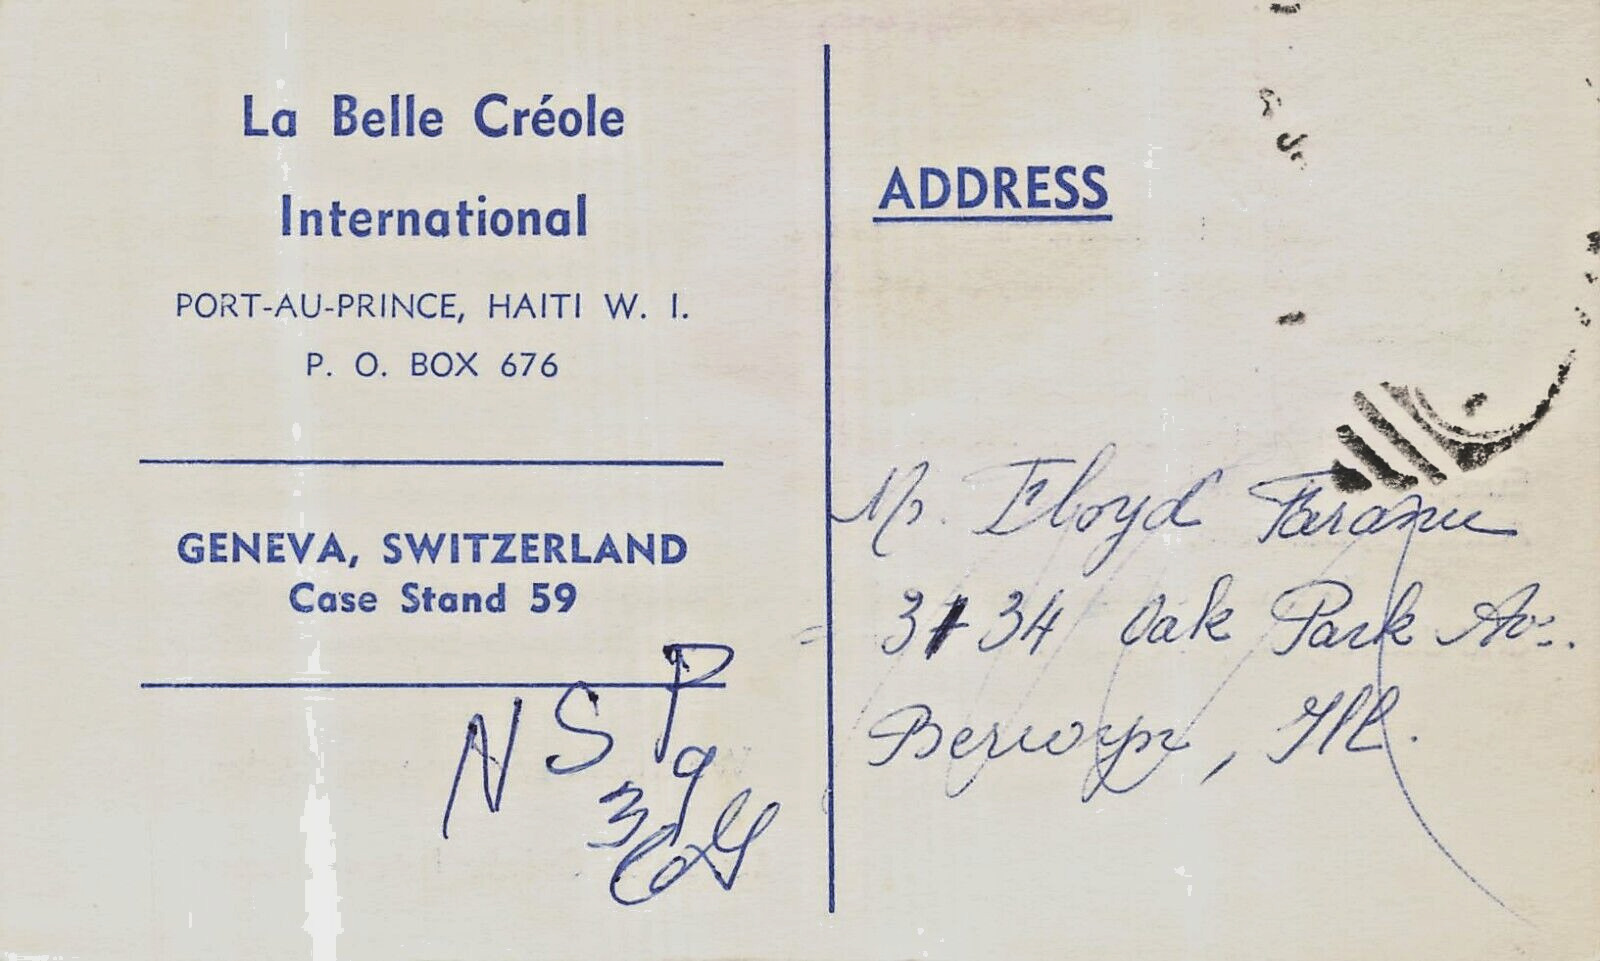 La Belle Créole
International
PORT-AU-PRINCE, HAITI W. I.
P. O. BOX 676
GENEVA, SWITZERLAND
Case Stand 59
N S P
9
3
ADDRESS
Mr. Floyd
3134 Oak Park Av.
Berwyn, Ill.